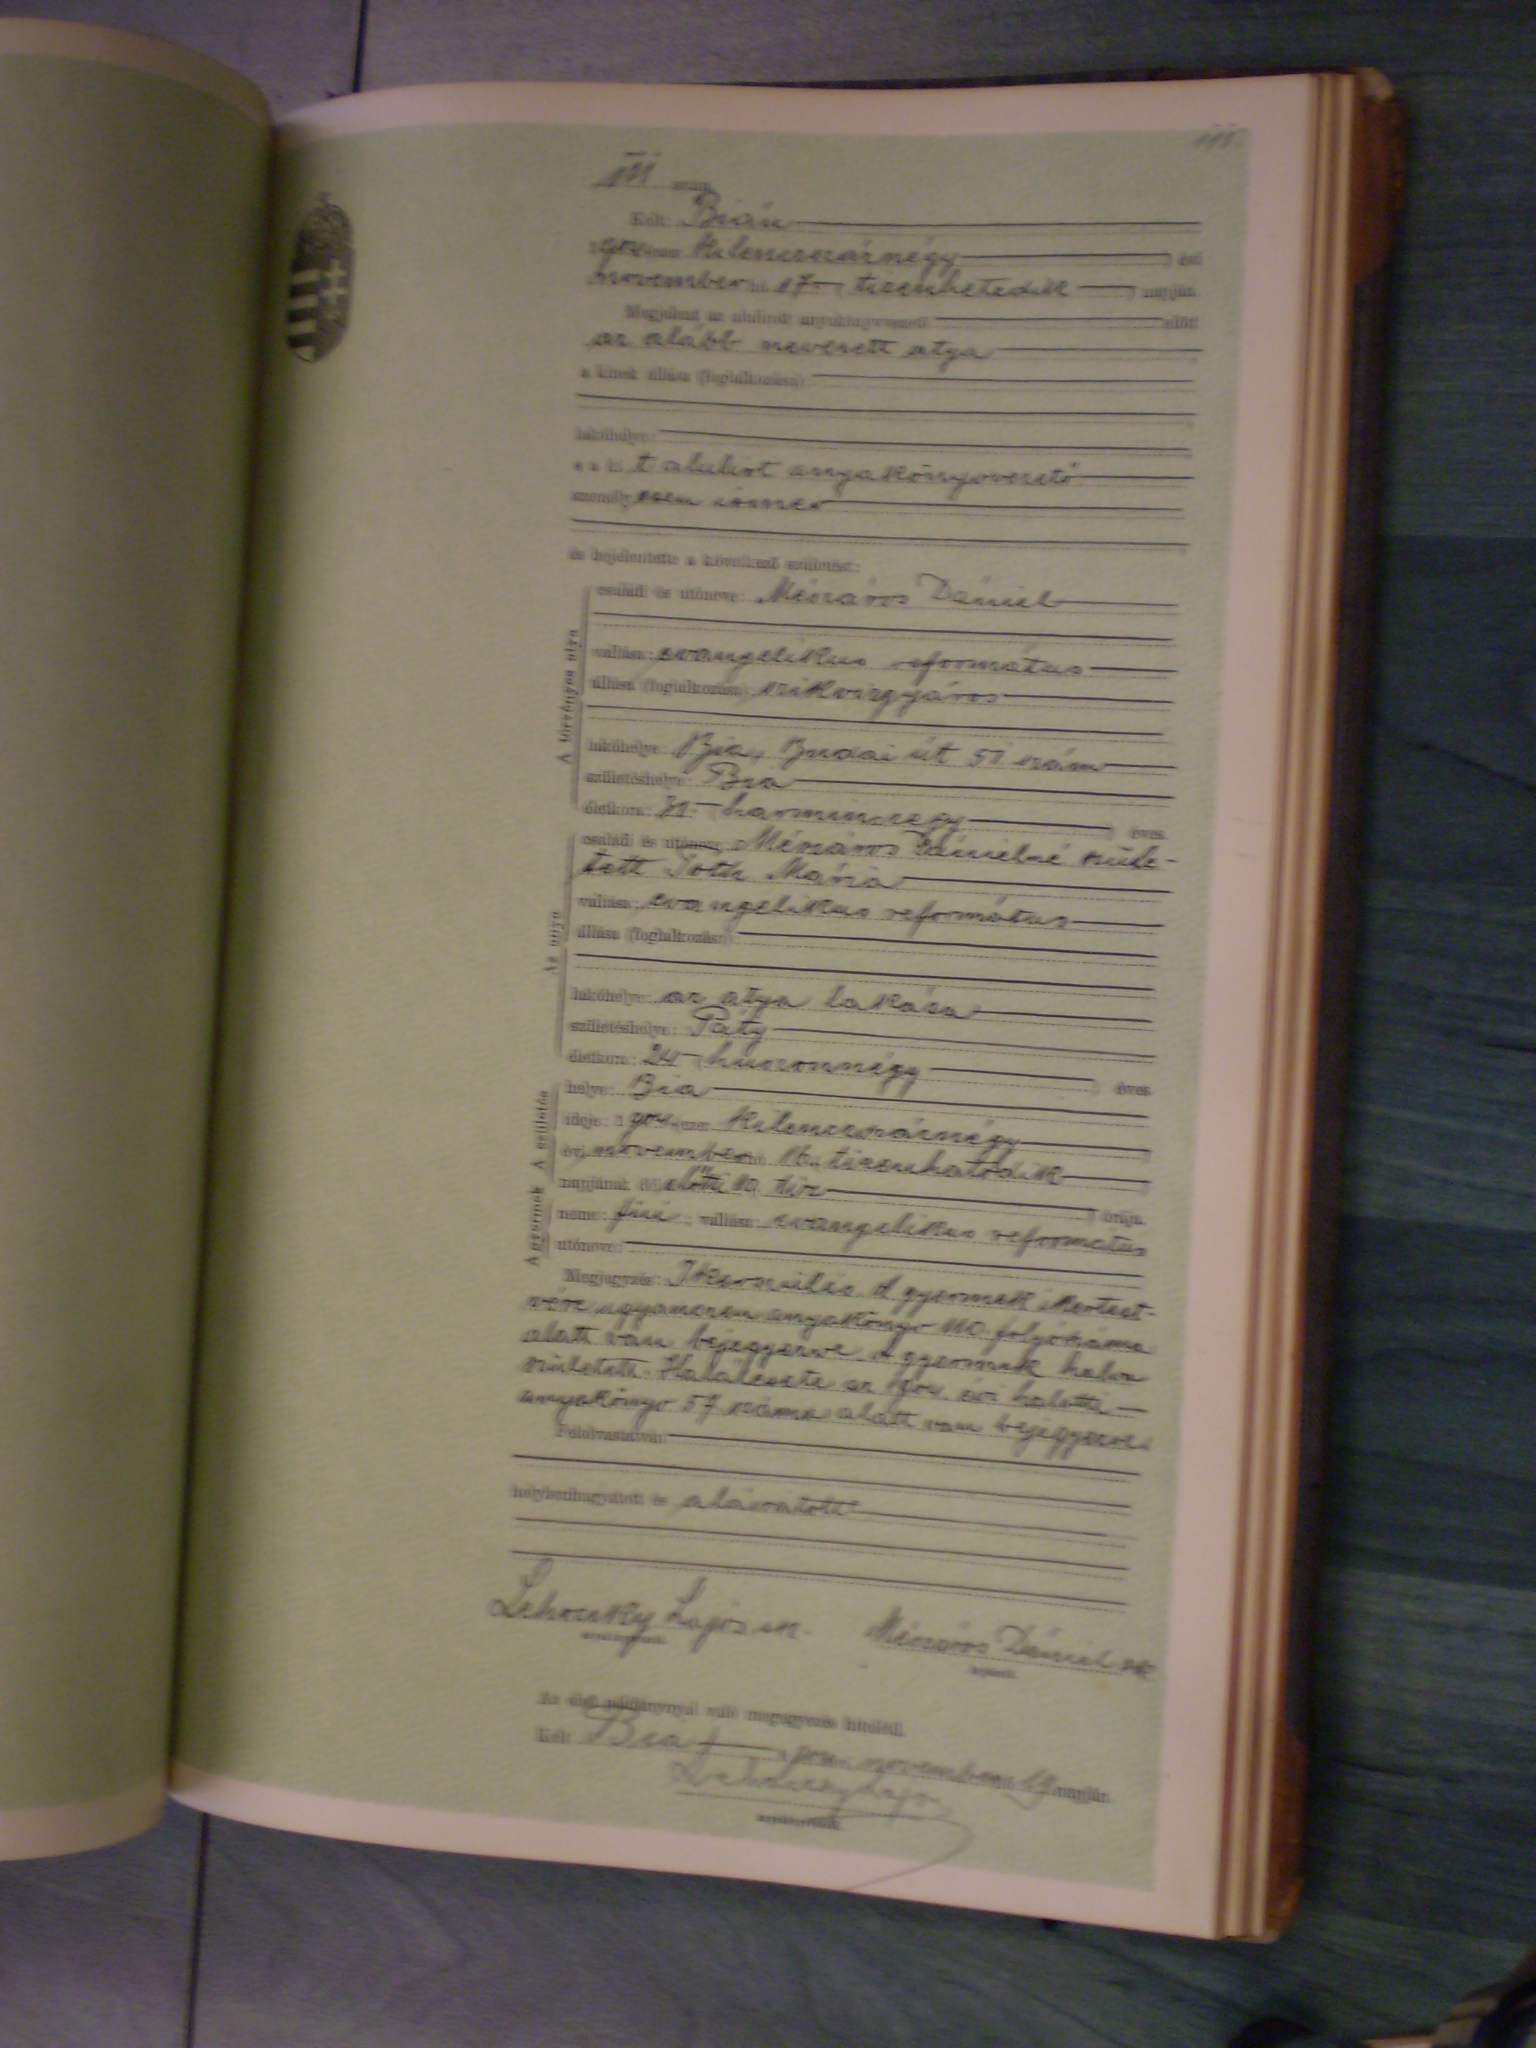 111.
111 szám.
Kelt: Bián
1904-ezer kilenczszáznégy évi
november hó 17. (tizenhetedik) napján.
Megjelent az alulirott anyakönyvvezető előtt
az alább nevezett atya
a kinek állása (foglalkozása)
lakóhelye:
s a ki t alulirt anyakönyvvezető
személyesen ismer
és bejelentette a következő születést:
A törvényes atya
családi és utóneve: Mészáros Dániel
vallása: evangelikus református
állása (foglalkozása) szikvizgyáros
lakóhelye: Bia, Budai út 51 szám
születéshelye: Bia
életkora: 31 (harminczegy) éves.
Az anya
családi és utóneve: Mészáros Dánielné szüle-
tett Tóth Mária
vallása: evangelikus református
állása (foglalkozása):
lakóhelye: az atya lakása
születéshelye: Páty
életkora: 24 (huszonnégy) éves.
A születés
helye: Bia
ideje: 1904-ezer kilenczszáznégy
évi november hó 16. tizenhatodik
napjának (dél)előtti 10 tiz órája.
A gyermek
neme: fiú; vallása: evangelikus református
utóneve:
Megjegyzés: Ikerszülés. A gyermek ikertest-
vére ugyanezen anyakönyv 110. folyószáma
alatt van bejegyezve. A gyermek halva
született. Halálesete az 1904. évi halotti
anyakönyv 57 száma alatt van bejegyezve.
Felolvastatván
helybenhagyatott és aláiratott
Lehoczky Lajos sk. Mészáros Dániel sk.
anyakönyvvezető. bejelentő.
Az első példánynyal való megegyezés hiteléül.
Kelt Bia, 1904. november 19 napján.
Lehoczky Lajos
anyakönyvvezető.